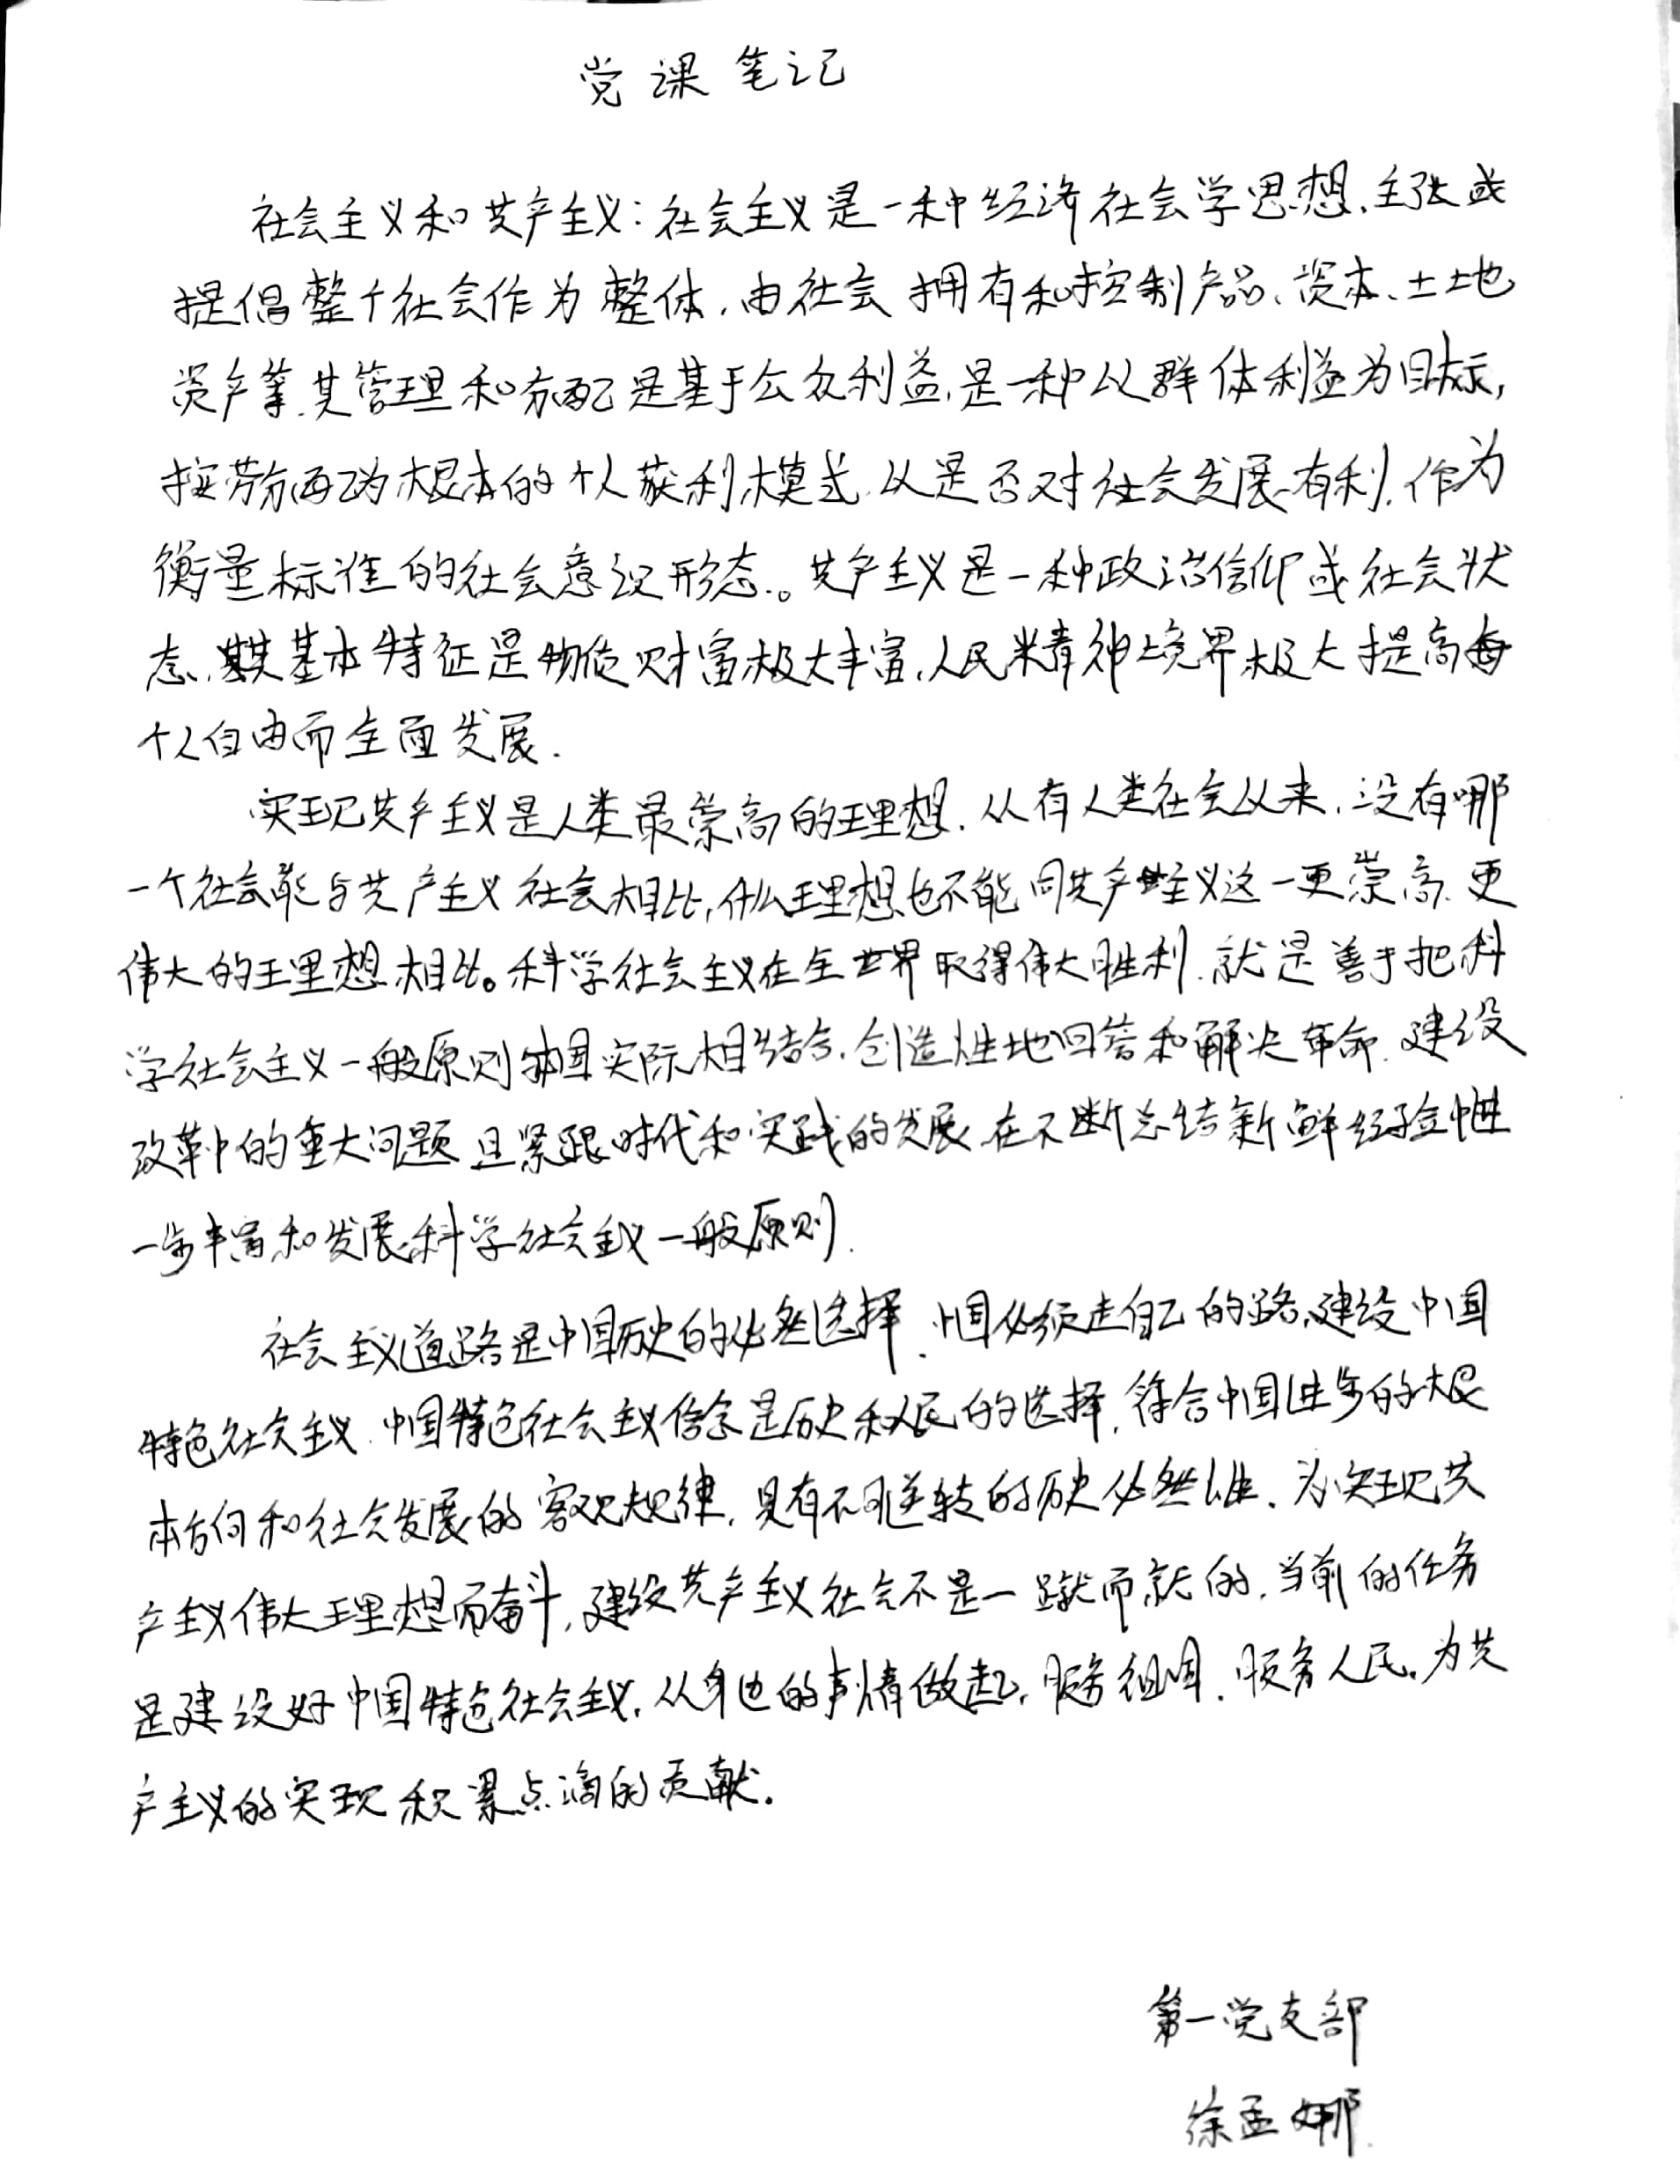 党课笔记
社会主义和共产主义：社会主义是一种经济社会学思想，主张或
提倡整个社会作为整体，由社会拥有和控制产品、资本、土地
资产等，其管理和分配是基于公众利益，是一种以群体利益为目标，
按劳分配为根本的个人获利模式，以是否对社会发展有利，作为
衡量标准的社会意识形态。共产主义是一种政治信仰或社会状
态，其基本特征是物质财富极大丰富，人民精神境界极大提高每
个人自由而全面发展.
实现共产主义是人类最崇高的理想．从有人类社会以来，没有哪
一个社会能与共产主义社会相比，什么理想也不能同共产主义这一更崇高、更
伟大的理想相比。科学社会主义在全世界取得伟大胜利．就是善于把科
学社会主义一般原则本国实际相结合，创造性地回答和解决革命、建设
改革中的重大问题且紧跟时代和实践的发展，在不断总结新鲜经验中进
一步丰富和发展科学社会主义一般原则．
社会主义道路是中国历史的必然选择．中国必须走自己的路，建设中国
特色社会主义．中国特色社会主义信念是历史和人民的选择，符合中国进步的根
本方向和社会发展的客观规律，具有不可逆转的历史必然性．为实现共
产主义伟大理想而奋斗，建设共产主义社会不是一蹴而就的，当前的任务
是建设好中国特色社会主义，从身边的事情做起，服务祖国，服务人民，为共
产主义的实现积累点滴的贡献．
第一党支部
徐孟娜